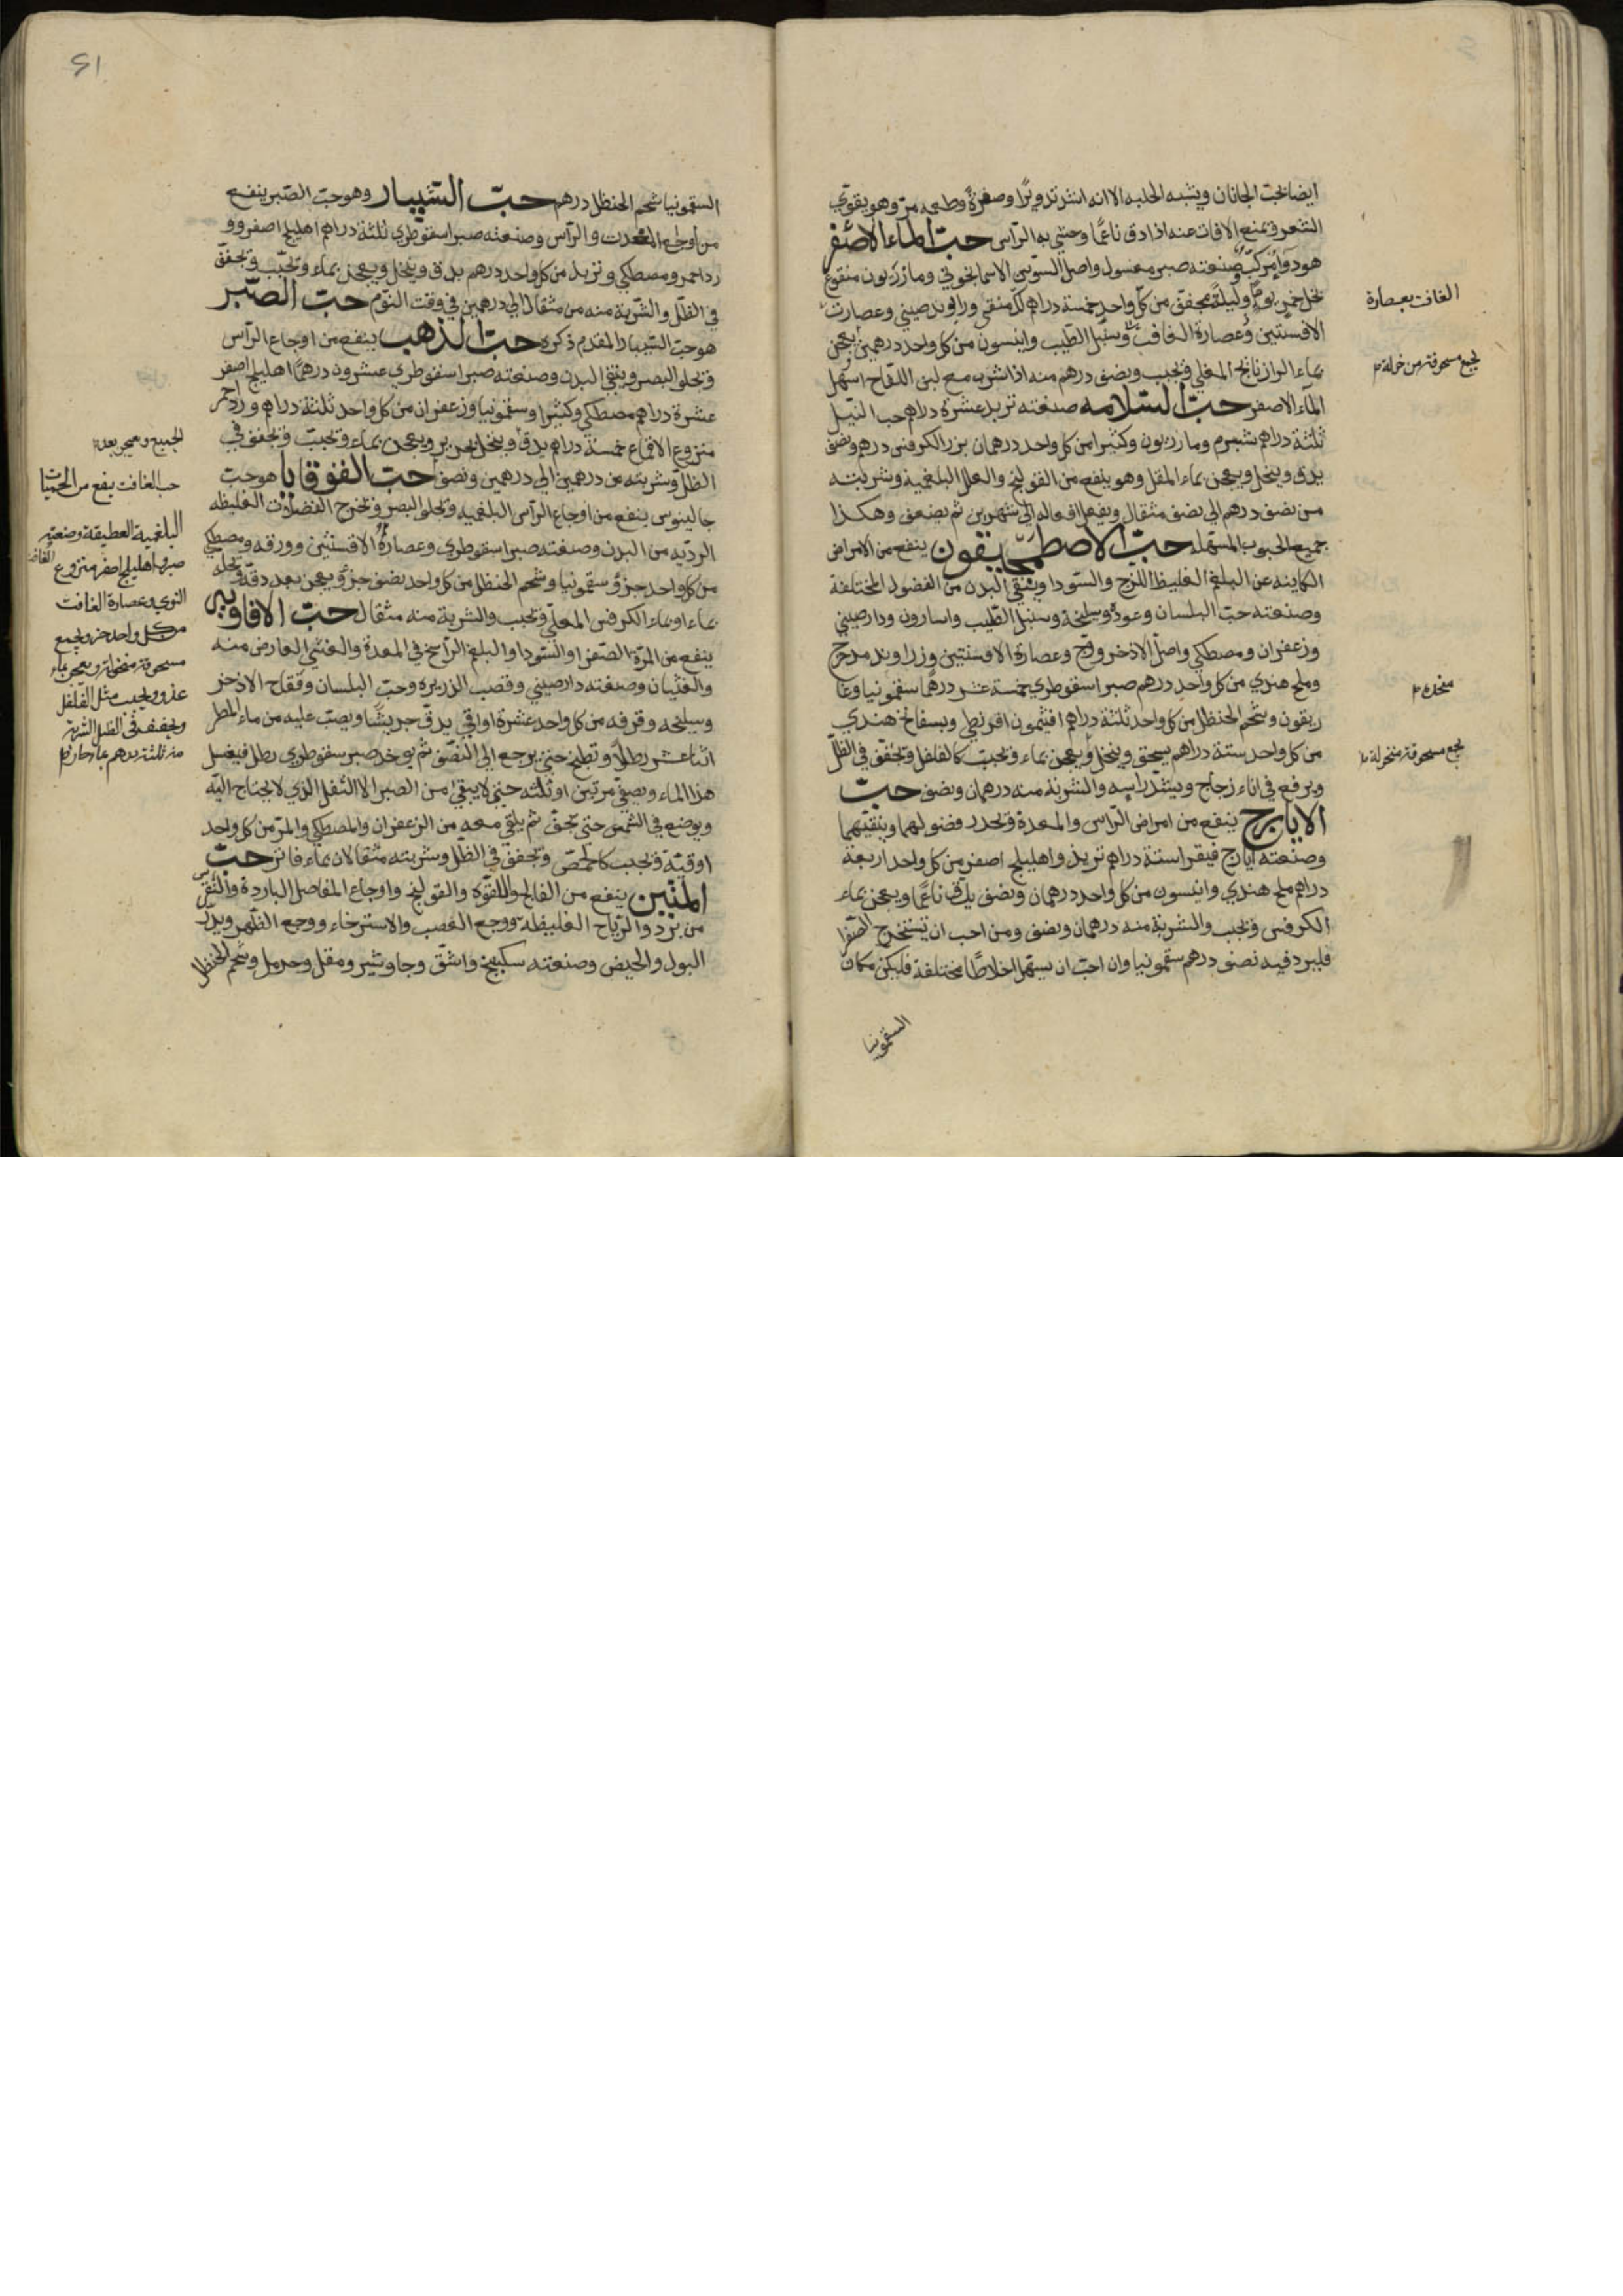 ايضا بخت الجانان ويشبه الحلبه الا انه اشد تدويرًا وصفرةً وطعمه مرّ وهو يقوّي
الشعر ويمنع الافات عنه اذا دق ناعمًا وحشي به الرّأس حبّ الماء الاصفر
هو دوآ مركبّ وصنعته صبر مغسول واصل السّوسن الاسمانجوني ومازريون منقوع
بخل خمر يومً وليلة مجفف من كلّ واحد خمسة دراهم لكّ منقى وراوند صيني وعصارة
الافسنتين وعصارة الغافت وسنبل الطّيب وانيسون من كلّ واحد درهمين يعجن
بماء الرازنانج المغلي ويحبب ونصف درهم منه اذا شرب مع لبن اللقاح اسهل
المآء الاصفر حبّ السّلامه صنعته تربد عشرة دراهم حبّ النّيل
ثلثة دراهم شبرم ومازريون وكثيرا من كل واحد درهمان بزر الكرفس درهم ونصف
يدق وينخل ويعجن بماء المقل وهو ينفع من القولنج والعلل البلغمية وشربته
من نصف درهم الى نصف مثقال ويفعل افعاله الى شهرين ثم يضعف وهكذا
جميع الحبوب المسهله حبّ الاصطمخيقون ينفع من الامراض
الكاينه عن البلغم الغليظ اللزج والسّودا وينقي البدن من الفضول المختلفة
وصنعته حبّ البلسان وعوده وسليخة وسنبل الطّيب واسارون ودارصيني
وزعفران ومصطكي واصل الاذخر ووج وعصارة الافسنتين وزراوند مدحرج
وملح هندي من كل واحد درهم صبر اسقوطري خمسة عشر درهمًا سقمونيا وغا
ريقون وشحم الحنظل من كل واحد ثلثة دراهم افتيمون اقريطي وبسفايج هندي
من كل واحد ستة دراهم يسحق وينخل ويعجن بماء ويحبّب كالفلفل ويجفّف في الظلّ
ويرفع في اناء زجاج ويشدّ راسه والشربة منه درهمان ونصف حبّ
الايارج ينفع من امراض الرّاس والمعدة ويحدر فضولهما وينقيهما
وصنعته ايارج فيقرا ستة دراهم تربد واهليلج اصفر من كل واحد اربعة
دراهم ملح هندي وانيسون من كل واحد درهمان ونصف يدق ناعمًا ويعجن بماء
الكرفس ويحبب والشربة منه درهمان ونصف ومن احب ان يستخرج الصّفرا
فليزد فيه نصف درهم سقمونيا وان احبّ ان يسهل اخلاطًا مختلفة فليكن مكان
السقمونيا
الغافت بعصارة
يجمع مسحوقة منخولة
منخلة
يجمع مسحوقة منخولة
السقمونيا شحم الحنظل درهم حبّ الشّبيار وهو حبّ الصّبر ينفع
من اوجاع المعدة والرّأس وصنعته صبر اسقوطري ثلثة دراهم اهليلج اصفر وو
رد احمر ومصطكي وتربد من كل واحد درهم يدق وينخل ويعجن بماء ويحبّب ويجفّف
في الظلّ والشّربة منه من مثقال الى درهمين في وقت النّوم حبّ الصّبر
هو حبّ الشّبيار المقدم ذكره حبّ الذهب ينفع من اوجاع الرّأس
ويجلو البصر وينقي البدن وصنعته صبر اسقوطري عشرون درهمًا اهليلج اصفر
عشرة دراهم مصطكي وكثيرا وسقمونيا وزعفران من كل واحد ثلثة دراهم ورد احمر
منزوع الاقماع خمسة دراهم يدق وينخل بحرير ويعجن بماء ويحبّب ويجفف في
الظلّ وشربته من درهمين الى درهمين ونصف حبّ القوقايا هو حبّ
جالينوس ينفع من اوجاع الرّأس البلغميه ويجلو البصر ويخرج الفضلات الغليظه
الرديّه من البدن وصنعته صبر اسقوطري وعصارة الافسنتين وورقه ومصطكي
من كل واحد جزؤ سقمونيا وشحم الحنظل من كل واحد نصف جزؤ ويعجن بعد دقّه ونخله
بماء او بماء الكرفس المغلي ويحبب والشربة منه مثقال حبّ الافاويه
ينفع من المرّة الصّفرا والسّودا والبلغم الرّاسخ في المعدة والغشي العارض منه
والغثيان وصنعته دارصيني وقصب الذريره وحبّ البلسان وفقاح الاذخر
وسليخه وقرفه من كل واحد عشرة اواقي يدق جريشًا ويصب عليه من ماء المطر
اثنا عشر رطلاً ويطبخ حتى يرجع الى النّصف ثم يوخذ صبر سقوطري رطل فيغسل
هذا الماء ويصفّى مرتين او ثلثه حتى لا يبقى من الصبر الا الثّفل الذي لا يحتاج اليه
ويوضع في الشّمس حتى يجفّ ثم يلقى معه من الزعفران والمصطكي والمرّ من كل واحد
اوقيّة ويحبب كالحمّص ويجفف في الظلّ وشربته مثقالان بماء فاتر حبّ
المنتن ينفع من الفالج واللّقوه والقولنج واوجاع المفاصل البارده والنّقرس
من برد والرّياح الغليظه ووجع العصب والاسترخاء ووجع الظّهر ويدرّ
البول والحيض وصنعته سكبينج واشقّ وجاوشير ومقل وحرمل وشحم الحنظل
الجميع ويعجن بعده
حب الغافت ينفع من الحميّات
البلغمية العطيقة وصنعته
صبر واهليلج اصفر منزوع
النوى وعصارة الغافت
من كل واحد جزؤ يجمع
مسحوقة منخولة ويعجن بماء
عذب ويحبب مثل الفلفل
ويجفف في الظل الشربة
منه ثلثة درهم بماء حار